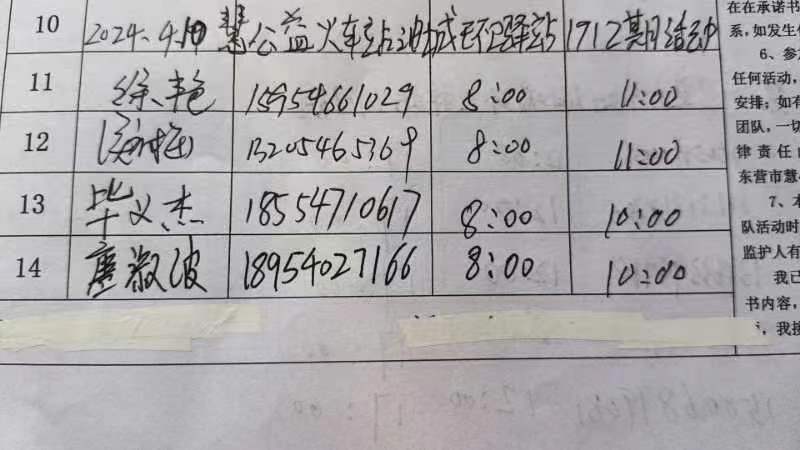 10 2024.4.10 慧公益火车站油城环卫驿站1912期活动
11 徐艳 15954661029 8:00 11:00
12 13205465369 8:00 11:00
13 毕义杰 18554710617 8:00 10:00
14 唐淑波 18954027166 8:00 10:00
在在承诺书
系,如发生
6、参
任何活动,
安排;如有
团队,一切
律责任
东营市慧
7、本
队活动时
监护人有
我已
书内容,
,我接